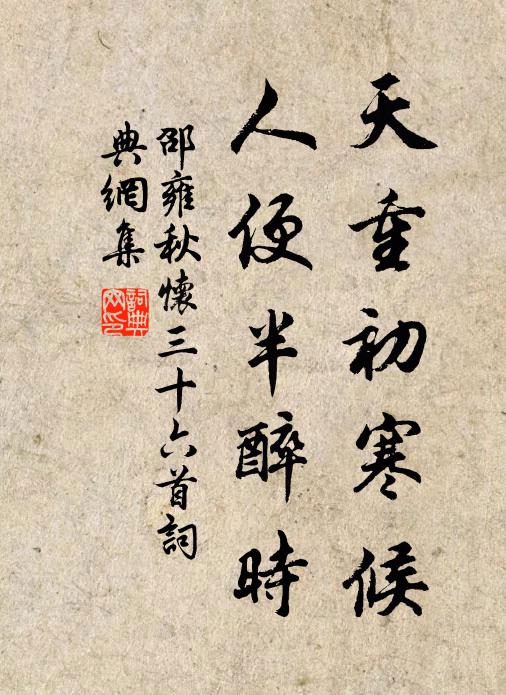 天重初寒候
人便半醉時
邵雍秋懷三十六首詞
典網集
詞典
网印